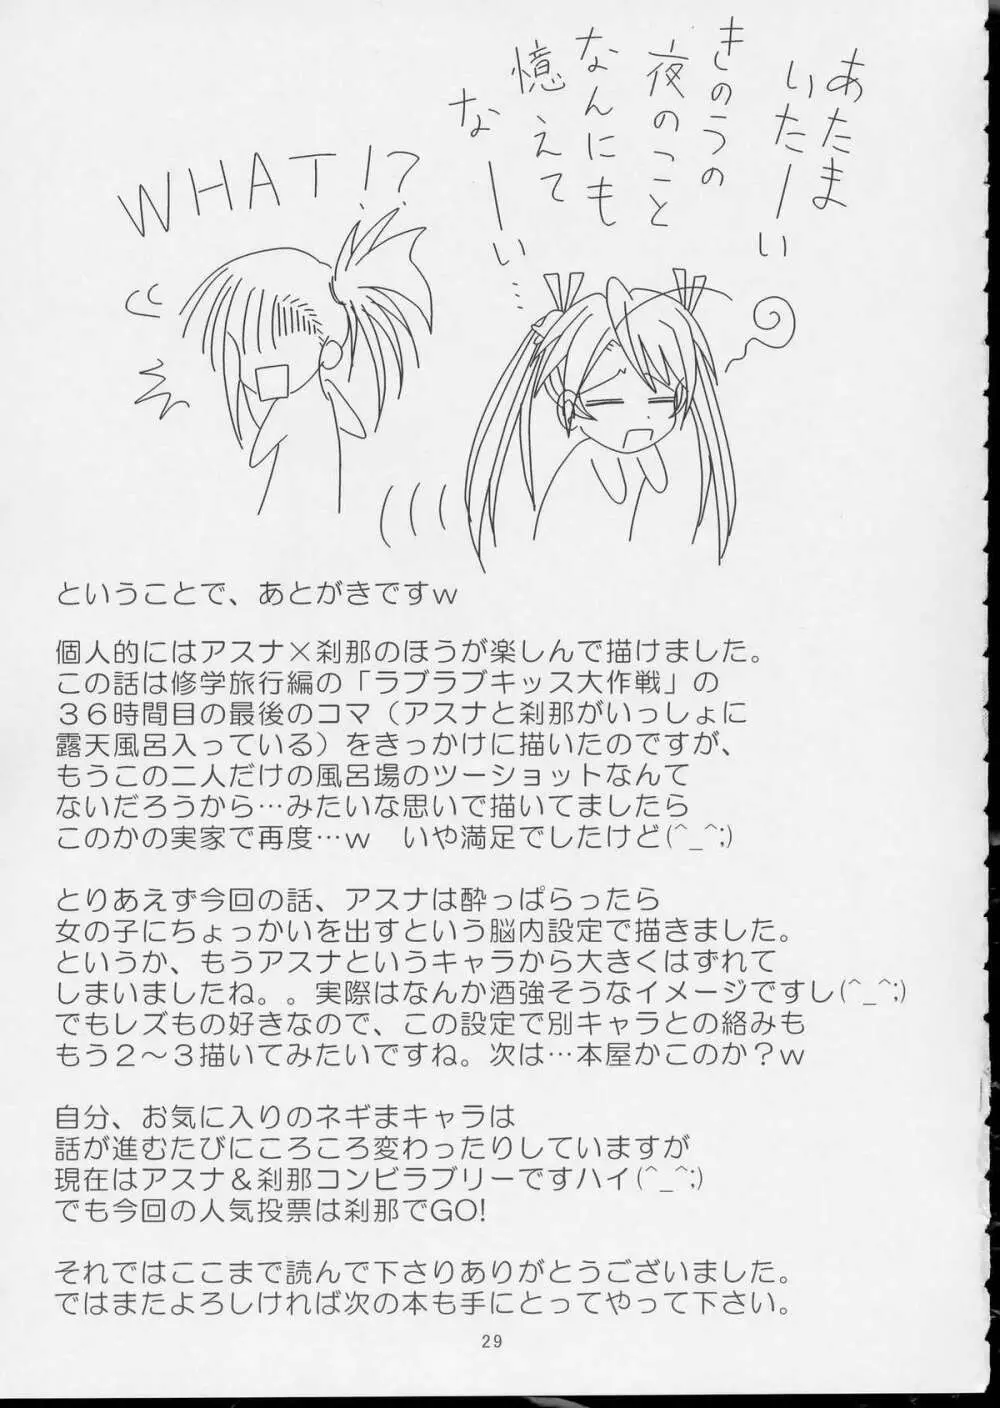 あたま
いたーい
きのうの
夜のこと
なんにも
憶えて
なーい…
WHAT!?
ということで、あとがきですｗ
個人的にはアスナ×刹那のほうが楽しんで描けました。
この話は修学旅行編の「ラブラブキッス大作戦」の
３６時間目の最後のコマ（アスナと刹那がいっしょに
露天風呂入っている）をきっかけに描いたのですが、
もうこの二人だけの風呂場のツーショットなんて
ないだろうから…みたいな思いで描いてましたら
このかの実家で再度…ｗ　いや満足でしたけど(^_^;)
とりあえず今回の話、アスナは酔っぱらったら
女の子にちょっかいを出すという脳内設定で描きました。
というか、もうアスナというキャラから大きくはずれて
しまいましたね。。実際はなんか酒強そうなイメージですし(^_^;)
でもレズもの好きなので、この設定で別キャラとの絡みも
もう２〜３描いてみたいですね。次は…本屋かこのか？ｗ
自分、お気に入りのネギまキャラは
話が進むたびにころころ変わったりしていますが
現在はアスナ＆刹那コンビラブリーですハイ(^_^;)
でも今回の人気投票は刹那でGO!
それではここまで読んで下さりありがとうございました。
ではまたよろしければ次の本も手にとってやって下さい。
29